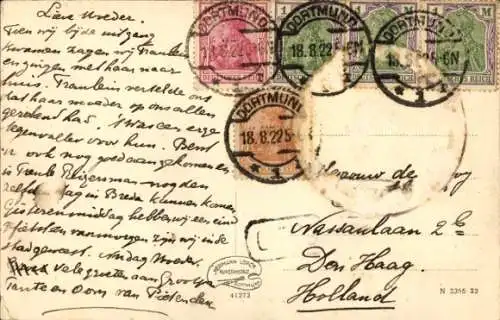 Lieve Moeder.
Toen wij bij de uitgang
kwamen zagen wij Fraulein
en gingen met haar naar
huis. Fraulein vertelde ons
dat haar moeder op ons allen
gerekend had. 't Was een erge
tegenvaller voor hun. Bent
u ook nog goed aangekomen en
is Tante nog den
zelf dag in Breda kunnen komen
Gisterenmiddag hebben wij een eind
gefietst en vanmorgen zijn wij in de
stad geweest. Nu dag Moeder.
vele groeten aan Grootpa
Tante en Oom van Piet en
DORTMUND
18.8.22
1
DORTMUND
18.8.22
1
DORTMUND
18.8.22
1
DORTMUND
18.8.22
1
Mevrouw de
Nassaulaan 2
Den Haag
Holland
41273
N 2356 22